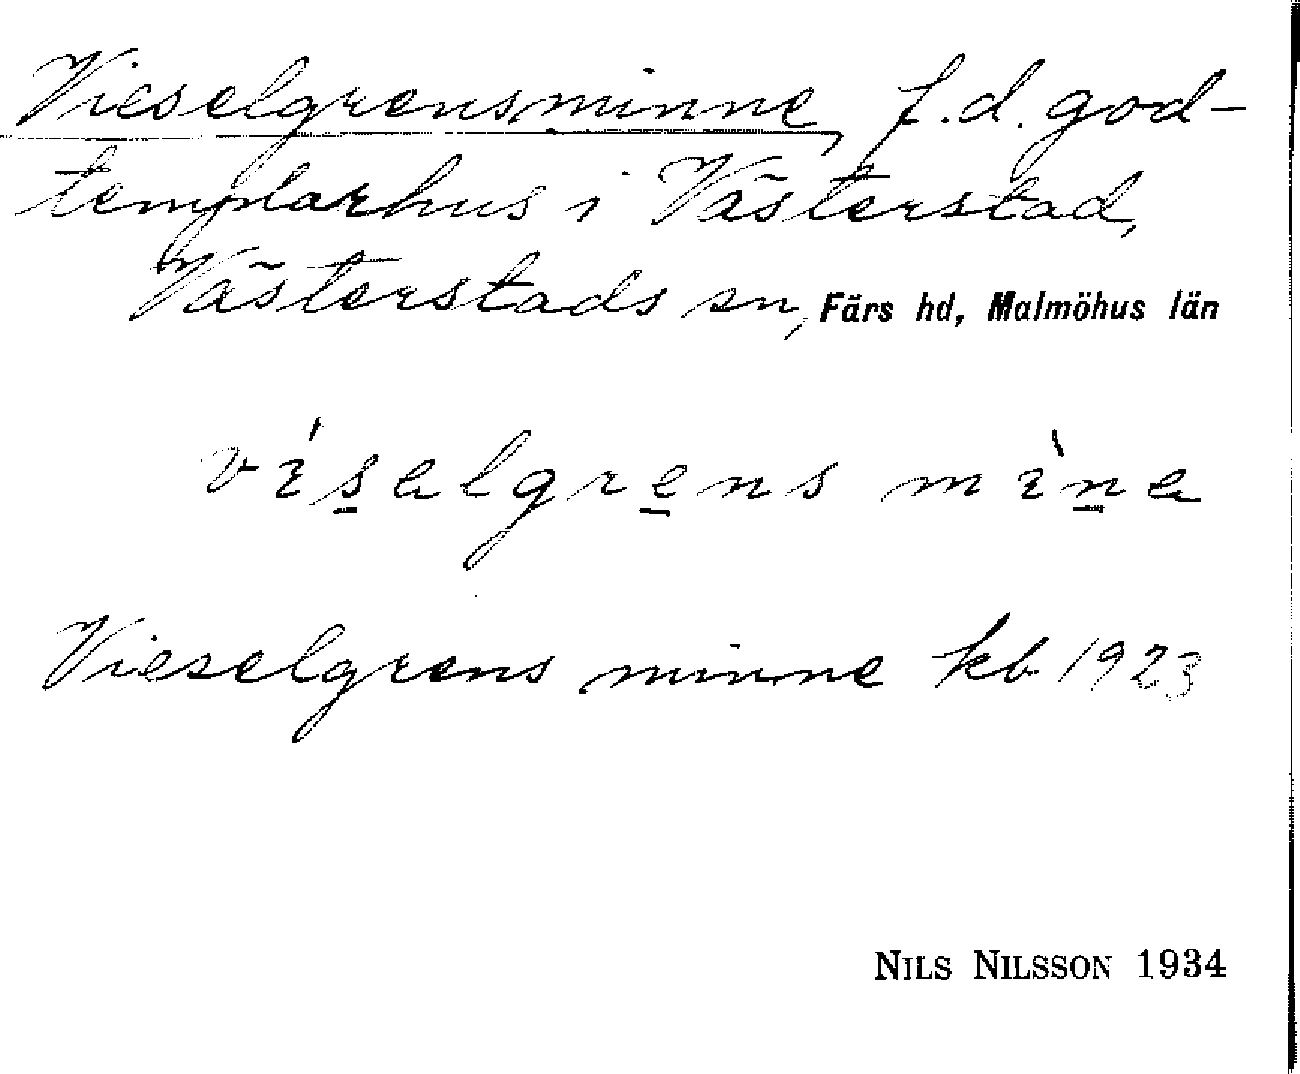 Vieselgrensminne, f.d. god-
templarhus i Västerstad,
Västerstads sn, Färs hd, Malmöhus län
víselgrens mìne
Vieselgrens minne kb 1923
NILS NILSSON 1934